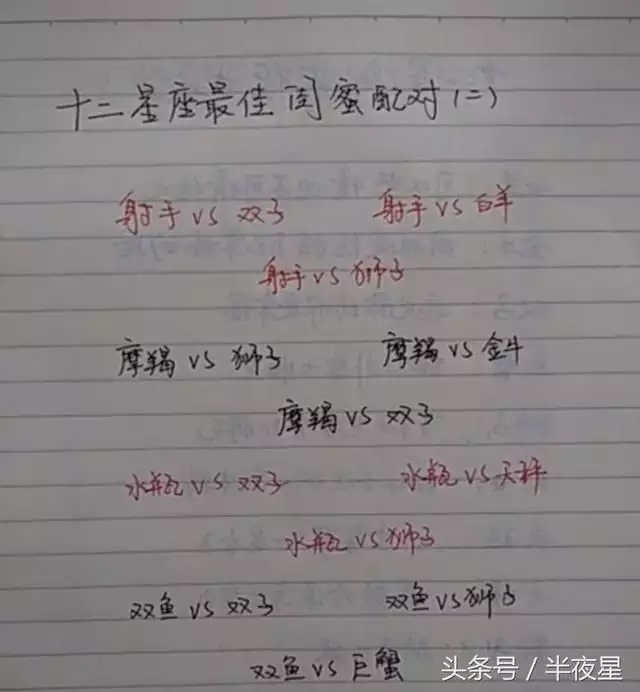 十二星座最佳闺蜜配对(二)
射手 VS 双子 射手 VS 白羊
射手 VS 狮子
摩羯 VS 狮子 摩羯 VS 金牛
摩羯 VS 双子
水瓶 VS 双子 水瓶 VS 天秤
水瓶 VS 狮子
双鱼 VS 双子 双鱼 VS 狮子
双鱼 VS 巨蟹
头条号 / 半夜星